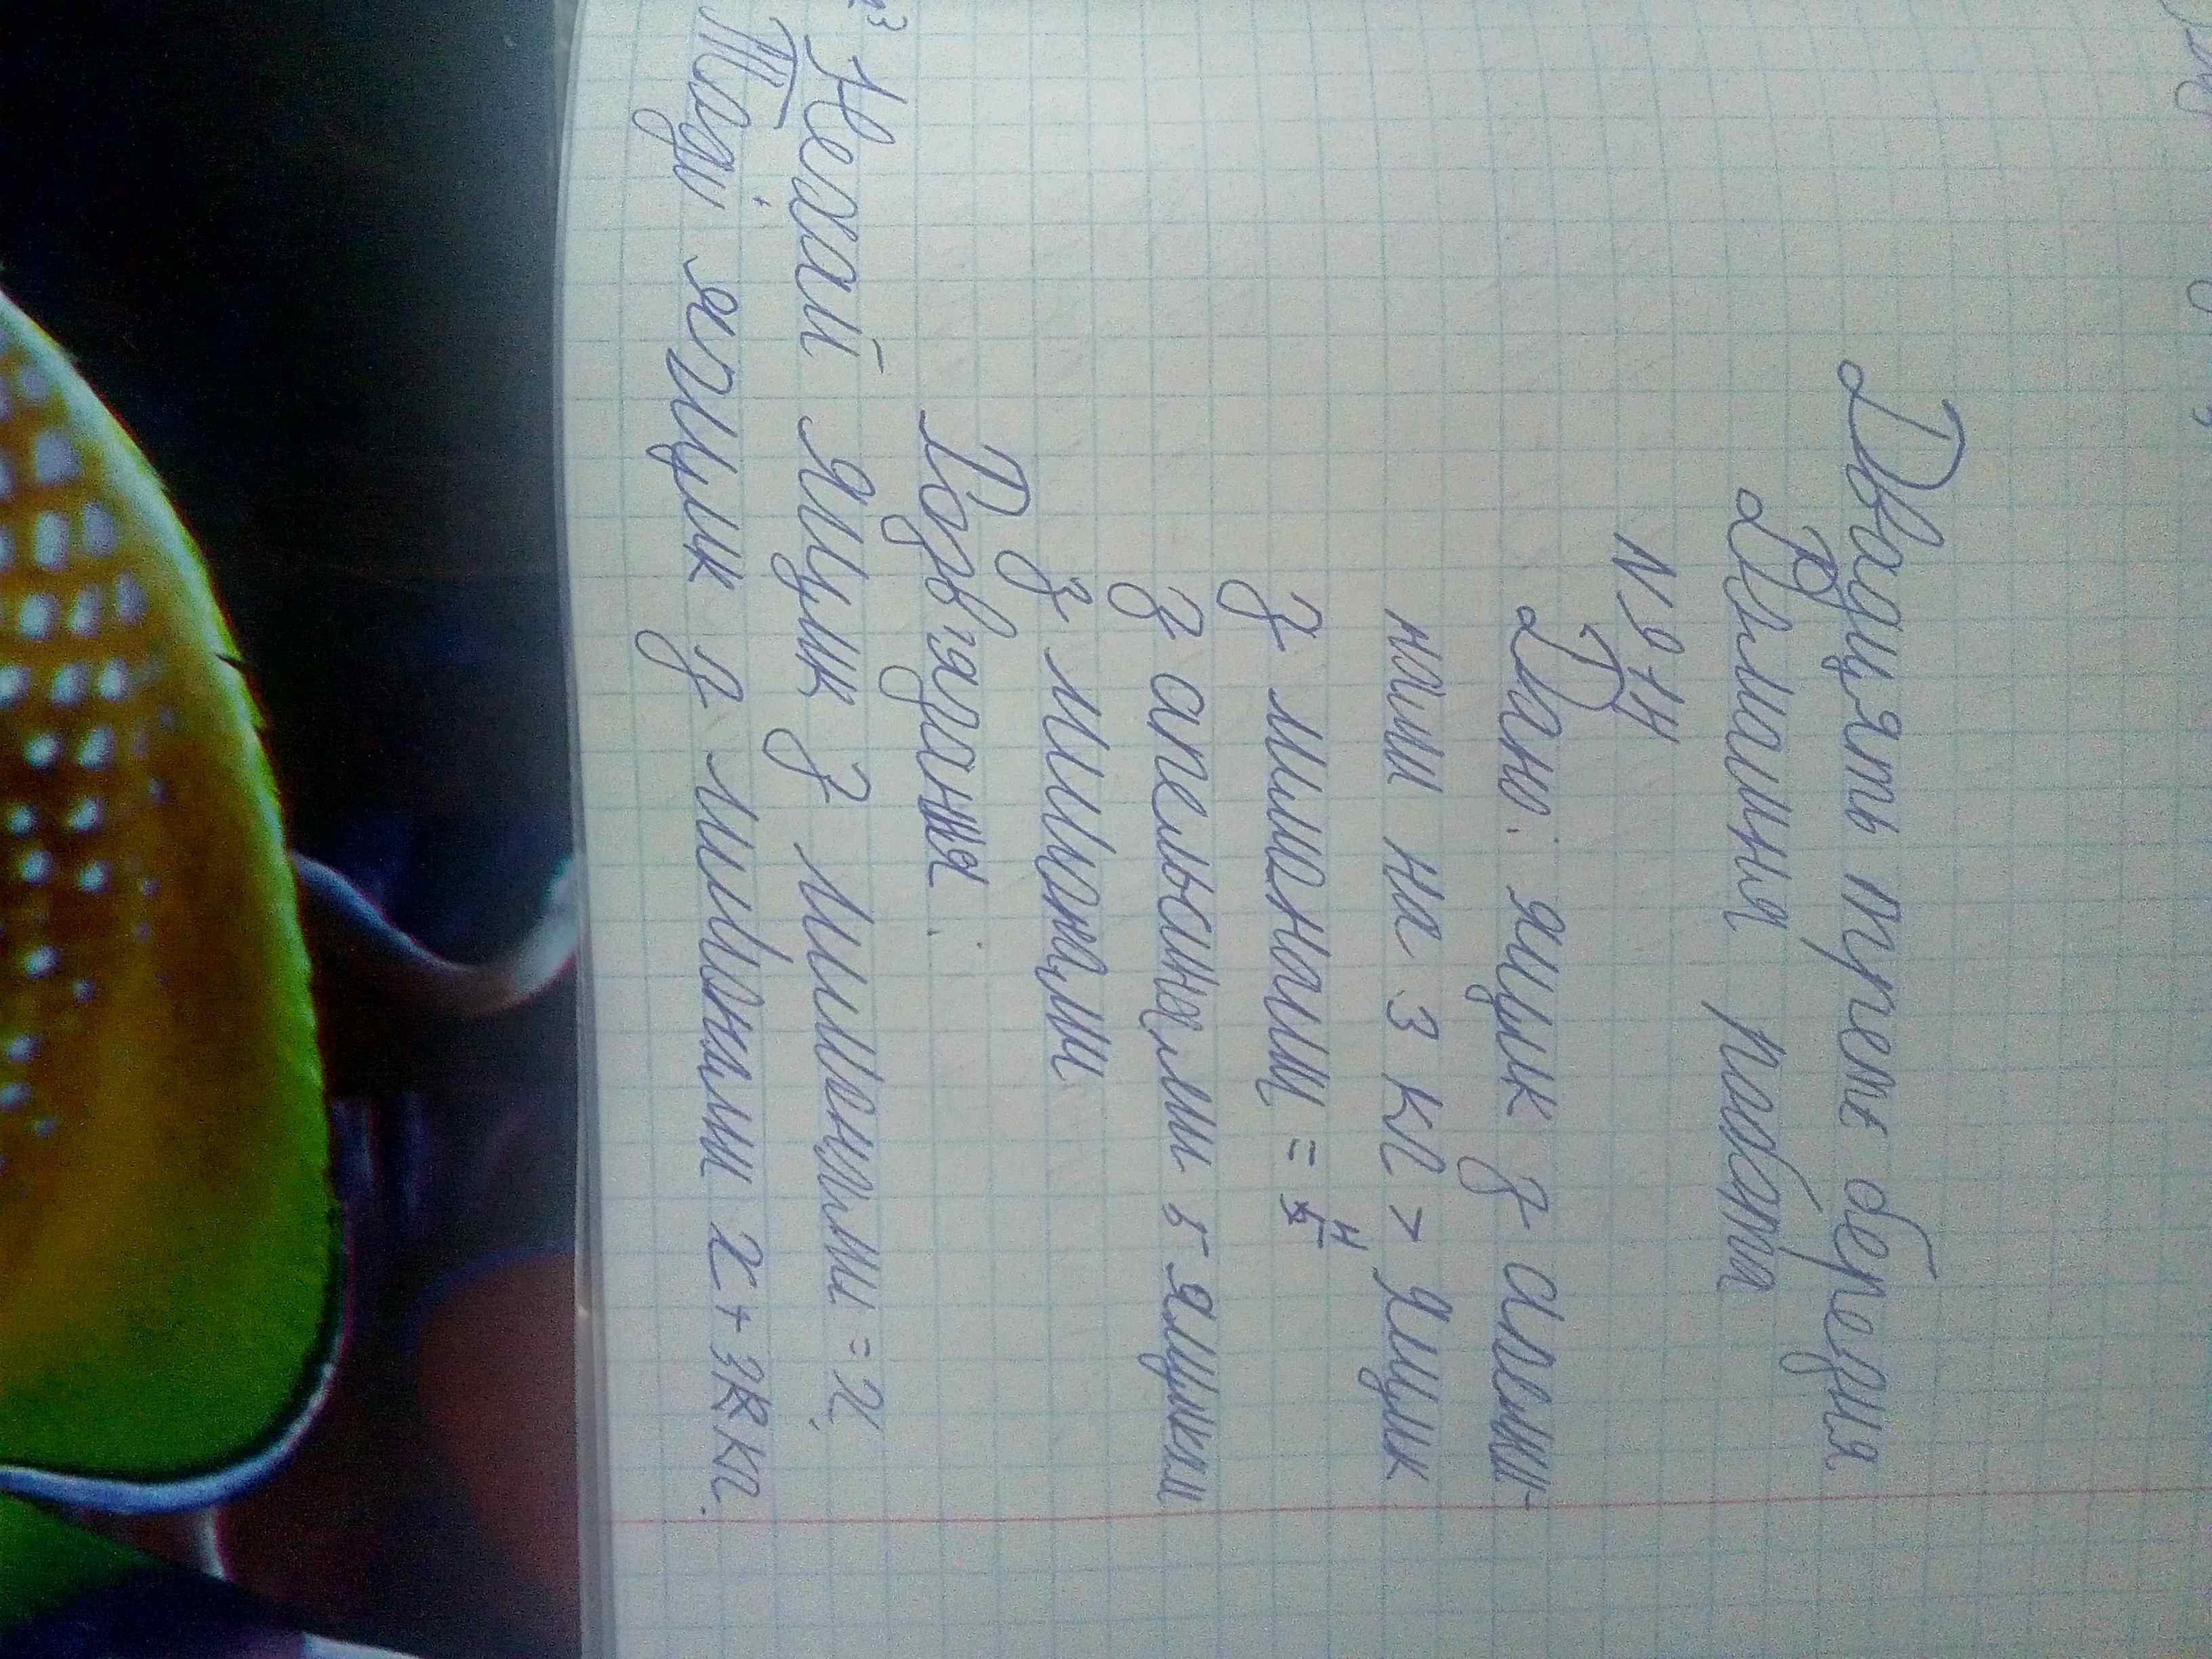 Двадцять трете березня
Домашня робота
№ 974
Дано: ящик з апельси-
нами на 3 кг > ящик
з лимонами =
з апельсинами 5 ящиками
з лимонами
Розв'язання:
Нехай ящик з лимонами = х,
Тоді ящик з лимонами х + 3 кг.